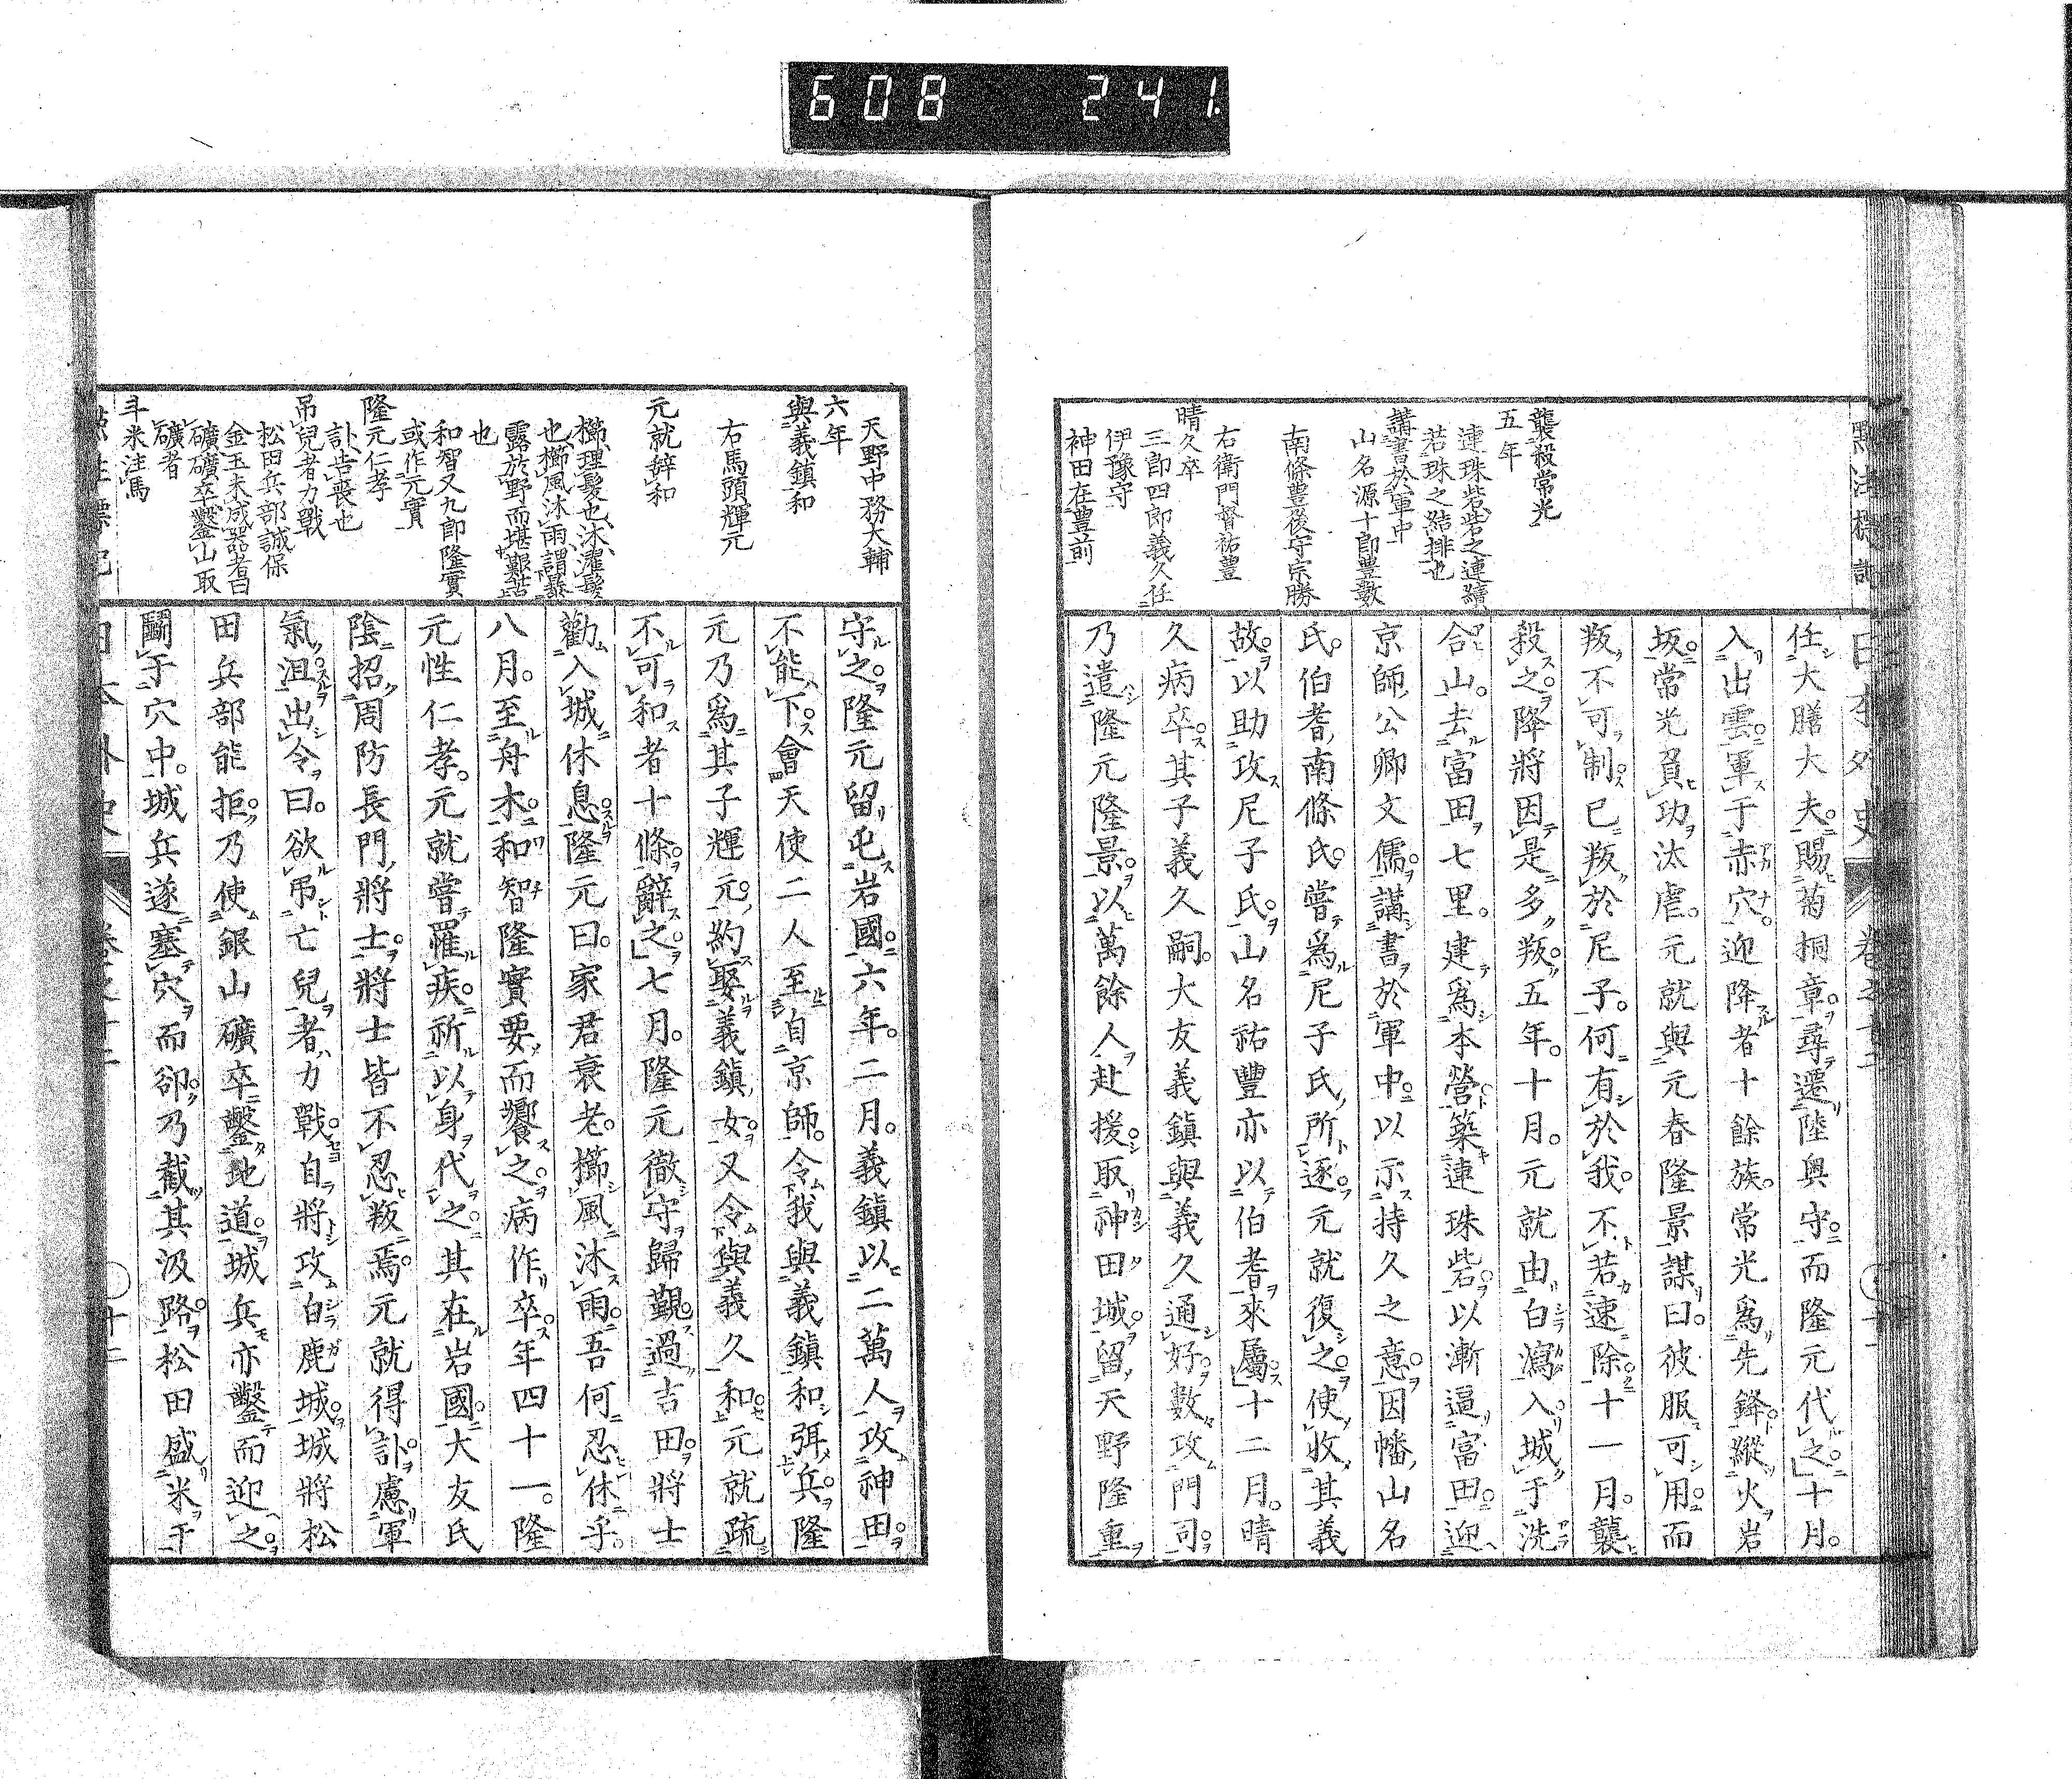 608 241
日本外史 卷之十二
襲殺常光
五年
連珠砦砦之連續
若珠之結排也
講書於軍中
山名源十郎豐數
南條豐後守宗勝
右衛門督祐豐
晴久卒
三郎四郎義久任
伊豫守
神田在豊前
任大膳大夫。賜菊桐章。尋遷陸奥守而隆元代之十月。
入出雲。軍于赤穴。迎降者十餘族。常光爲先鋒。縱火岩
坂。常光負功汰虐。元就與元春隆景謀曰。彼服可用。而
叛不可制。已叛於尼子。何有於我。不若速除。十一月。襲
殺之。降將因是多叛。五年。十月。元就由白潟入城于洗
合山。去富田七里。建爲本營。築連珠砦。以漸逼富田。迎
京師公卿文儒。講書於軍中。以示持久之意。因幡山名
氏。伯耆南條氏。嘗爲尼子氏所逐。元就復之。使收其義
故。以助攻尼子氏。山名祐豐亦以伯耆來屬。十二月。晴
久病卒。其子義久嗣。大友義鎮與義久通好。數攻門司。
乃遣隆元隆景。以萬餘人赴援。取神田城。留天野隆重
天野中務大輔
六年
與義鎮和
右馬頭輝元
元就辭和
櫛理髮也、沐濯髮
也、櫛風沐雨、謂暴
露於野而堪艱苦
也
和智又九郎隆實
或作元實
隆元仁孝
訃告喪也
吊兒者力戰
松田兵部誠保
金玉未成器者曰
礦礦卒鑿山取
礦者
斗米注馬
守之。隆元留屯岩國。六年。二月。義鎮以二萬人攻神田。
不能下。會天使二人至自京師。令我與義鎮和弭兵。隆
元乃爲其子輝元。約娶義鎮女。又令與義久和。元就疏
不可和者十條。辭之。七月。隆元徹守歸覲。過吉田。將士
勸入城休息。隆元曰。家君衰老。櫛風沐雨。吾何忍休乎。
八月。至舟木。和智隆實要而饗之。病作卒。年四十一。隆
元性仁孝。元就嘗罹疾。祈以身代之。其在岩國。大友氏
陰招周防長門將士。將士皆不忍叛焉。元就得訃。慮軍
氣沮。出令曰。欲吊亡兒者力戰。自將攻白鹿城。城將松
田兵部能拒。乃使銀山礦卒鑿地道。城兵亦鑿而迎之。
鬭于穴中。城兵遂塞穴而卻。乃截其汲路。松田盛米于